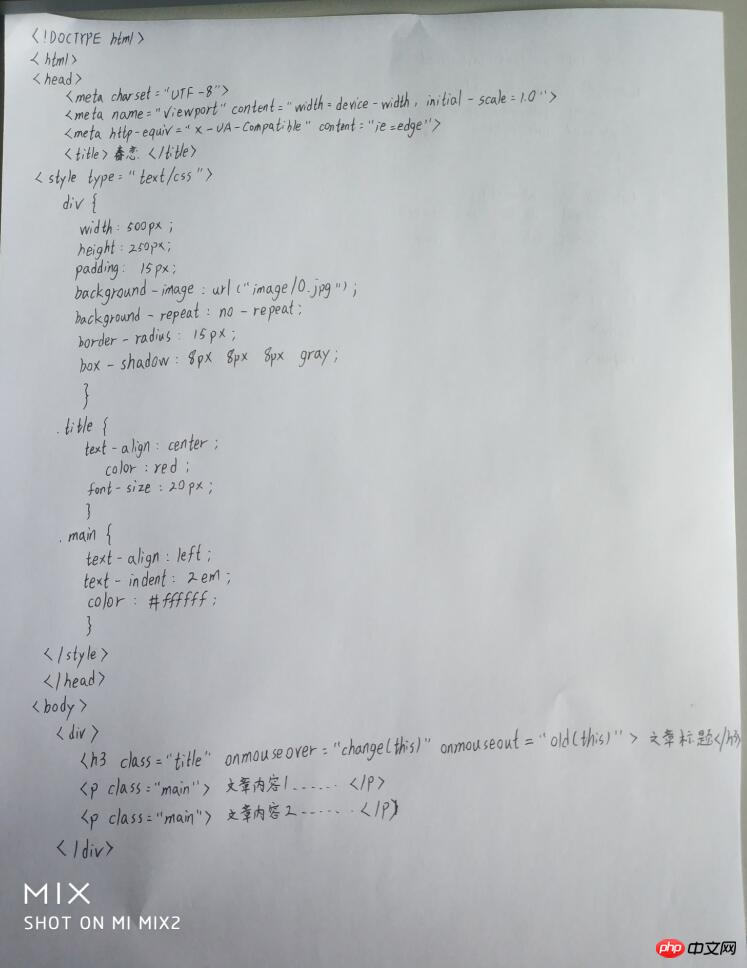 <!DOCTYPE html>
<html>
<head>
<meta charset="UTF-8">
<meta name="viewport" content="width=device-width, initial-scale=1.0">
<meta http-equiv="x-UA-Compatible" content="ie=edge">
<title>春恋</title>
<style type="text/css">
div {
width: 500px;
height: 250px;
padding: 15px;
background-image: url("image/0.jpg");
background-repeat: no-repeat;
border-radius: 15px;
box-shadow: 8px 8px 8px gray;
}
.title {
text-align: center;
color: red;
font-size: 20px;
}
.main {
text-align: left;
text-indent: 2em;
color: #ffffff;
}
</style>
</head>
<body>
<div>
<h3 class="title" onmouseover="change(this)" onmouseout="old(this)"> 文章标题</h3>
<p class="main"> 文章内容1...... </p>
<p class="main"> 文章内容2...... </p>
</div>
MIX
SHOT ON MI MIX2
php 中文网